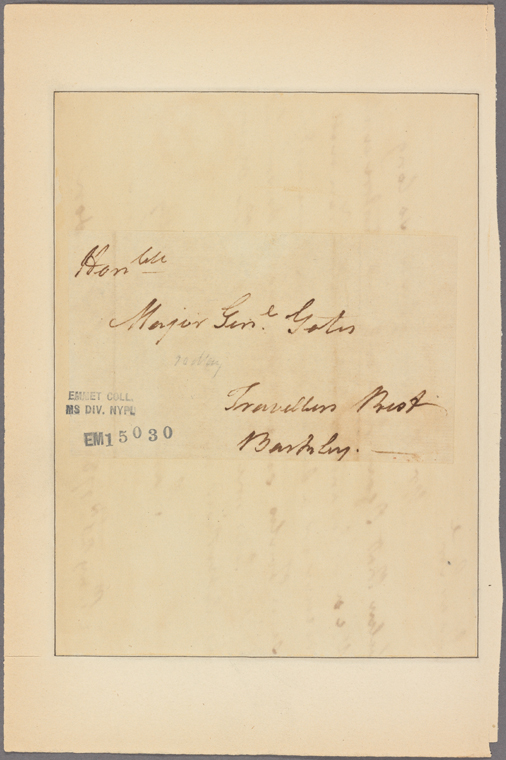 Hon^ble
Major Gen^l. Gates
Travellers Rest
Berkley.
EMMET COLL.
MS DIV. NYPL
EM15030